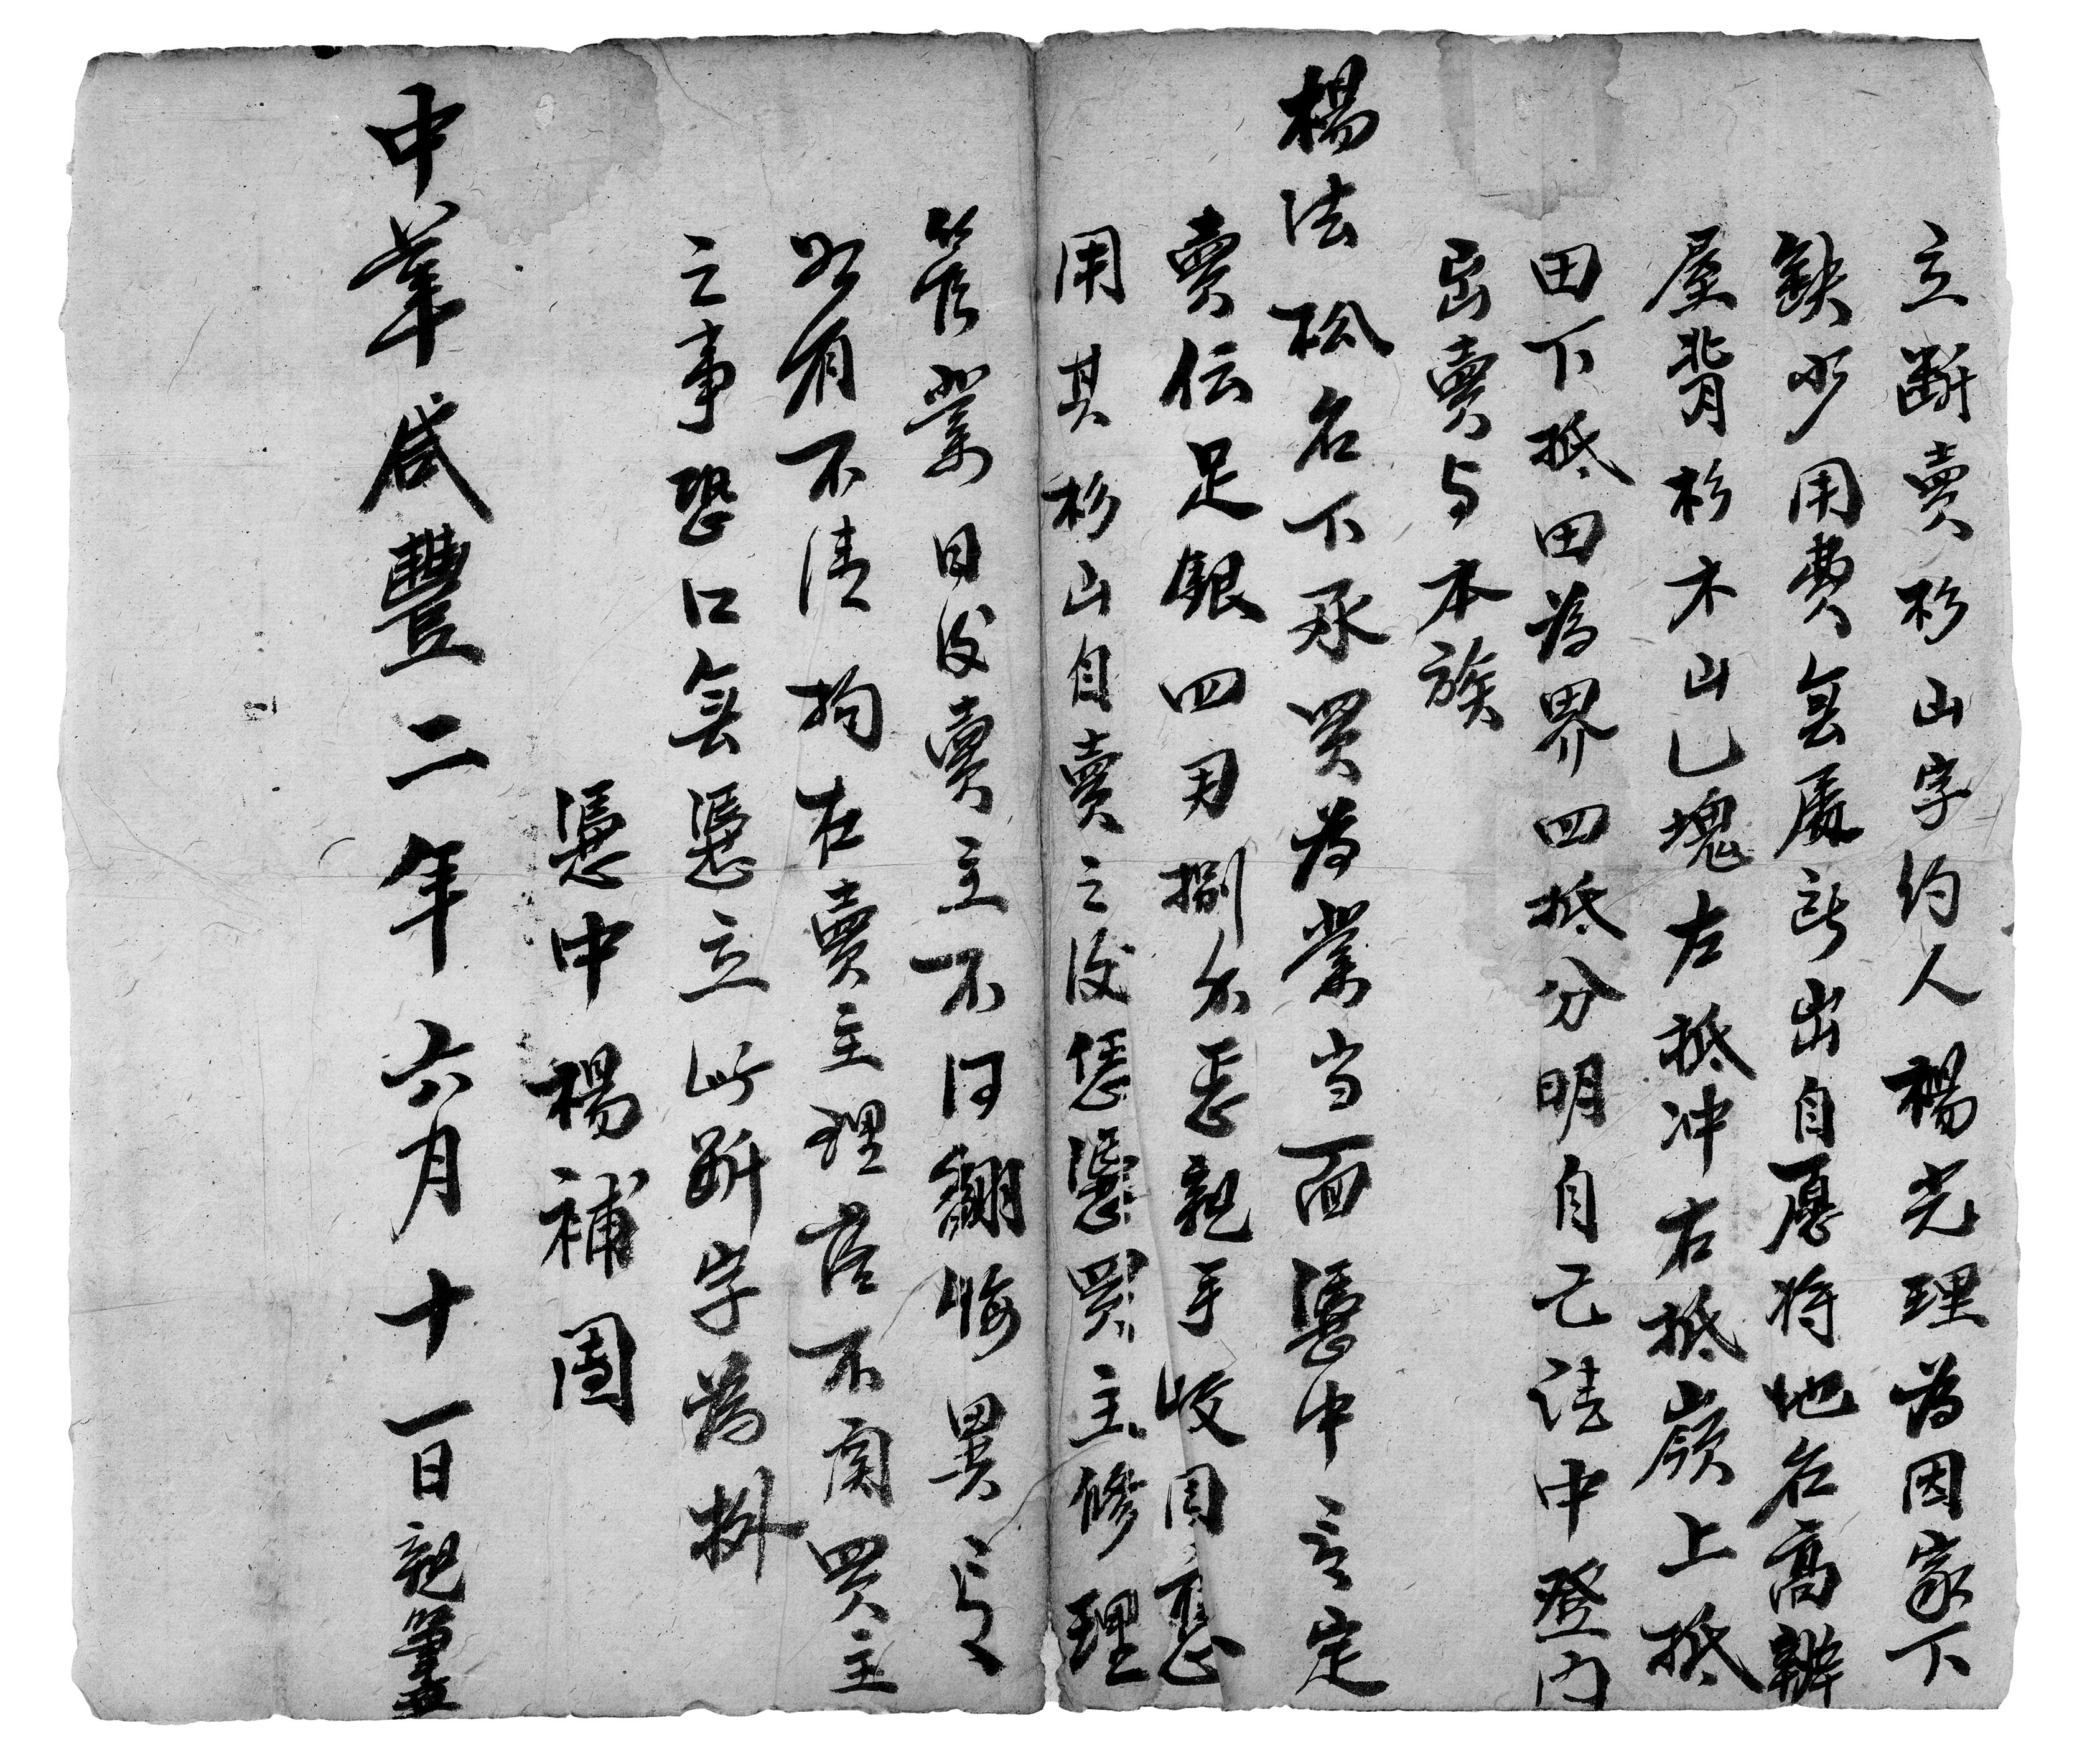 立断賣杉山字約人楊光理為因家下
缺少用費無處所出自愿將地名高辦
屋背杉木山乙塊左抵冲右抵嶺上抵
田下抵田為界四抵分明自己請中登門
出賣与本族
楊法松名下承買為業当面憑中言定
賣伝足銀四男捌分正親手收用應
用其杉山自賣之後恁憑買主修理
管業日後賣主不得翻悔異言
如有不清拘在賣主理落不関買主
之事恐口無憑立此断字為拠
憑中楊補周
中華咸豐二年六月十一日親筆立